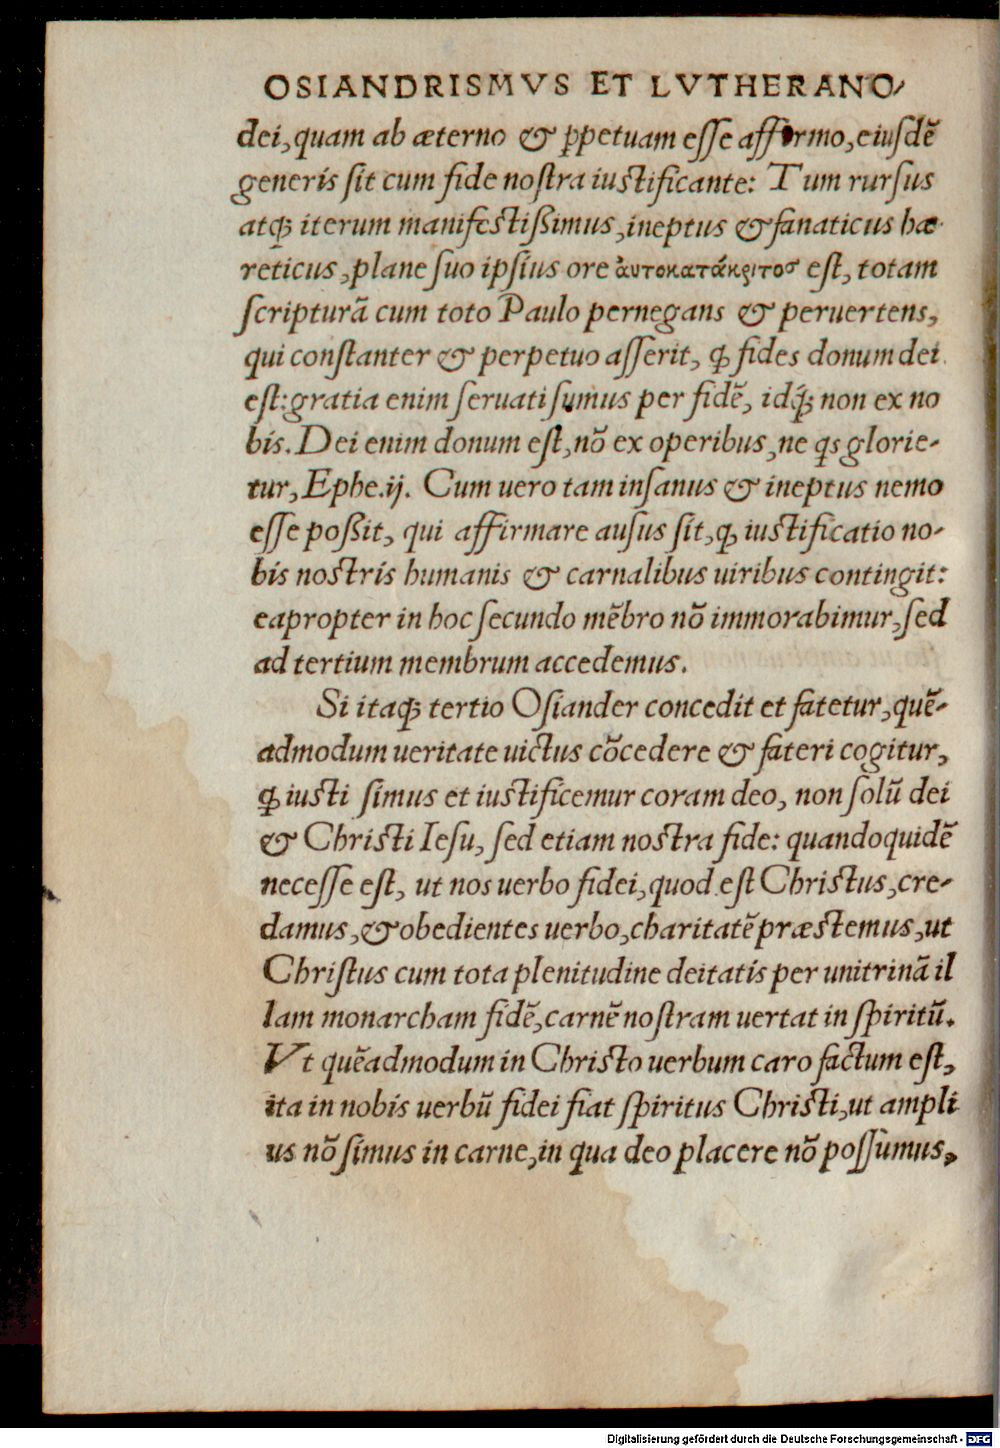 OSIANDRISMVS ET LVTHERANO-
dei, quam ab æterno & ꝑpetuam eſſe affirmo, eiuſdē
generis ſit cum fide noſtra iuſtificante: Tum rurſus
atq̃ iterum manifeſtißimus, ineptus & fanaticus hæ-
reticus, plane ſuo ipſius ore ἀυτοκατάκριτοσ eſt, totam
ſcripturā cum toto Paulo pernegans & peruertens,
qui conſtanter & perpetuo aſſerit, ꝙ fides donum dei
eſt: gratia enim ſeruati ſumus per fidē, idq́ꝫ non ex no
bis. Dei enim donum eſt, nō ex operibus, ne qs glorie-
tur, Ephe.ij. Cum uero tam inſanus & ineptus nemo
eſſe poßit, qui affirmare auſus ſit, ꝙ iuſtificatio no-
bis noſtris humanis & carnalibus uiribus contingit:
eapropter in hoc ſecundo mēbro nō immorabimur, ſed
ad tertium membrum accedemus.
Si itaqꝫ tertio Oſiander concedit et fatetur, quē-
admodum ueritate uictus cōcedere & fateri cogitur,
ꝙ iuſti ſimus et iuſtificemur coram deo, non ſolū dei
& Chriſti Ieſu, ſed etiam noſtra fide: quandoquidē
neceſſe eſt, ut nos uerbo fidei, quod eſt Chriſtus, cre-
damus, & obedientes uerbo, charitatē præſtemus, ut
Chriſtus cum tota plenitudine deitatis per unitrinā il
lam monarcham fidē, carnē noſtram uertat in ſpiritū.
Vt quēadmodum in Chriſto uerbum caro factum eſt,
ita in nobis uerbū fidei fiat ſpiritus Chriſti, ut ampli
us nō ſimus in carne, in qua deo placere nō poſſumus,
Digitalisierung gefördert durch die Deutsche Forschungsgemeinschaft - DFG